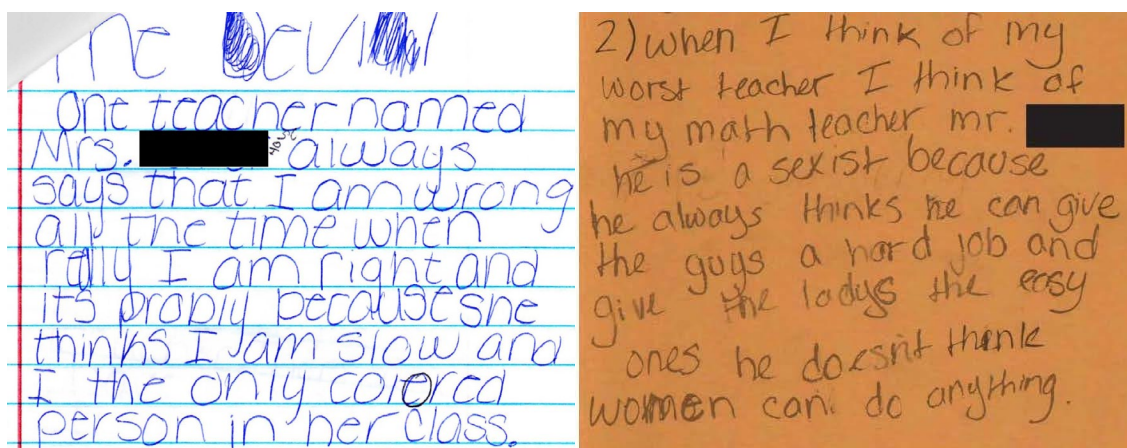 The Devil
One teacher named
Mrs. always
says that I am wrong
all the time when
rally I am right and
it's probly because she
thinks I am slow and
I the only colered
person in her class.
2) when I think of my
worst teacher I think of
my math teacher mr.
he is a sexist because
he always thinks he can give
the guys a hard job and
give the ladys the easy
ones he doesn't think
women can do anything.